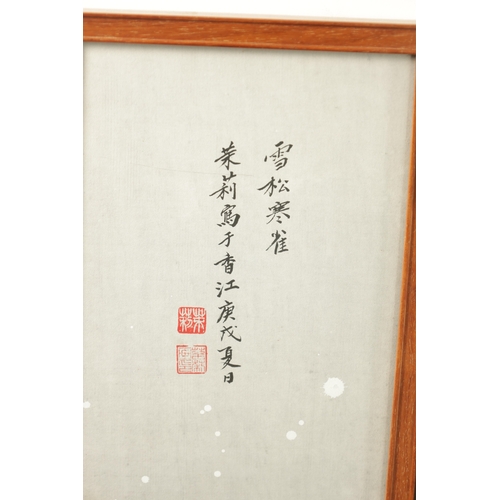 雪松寒雀
茉莉寫于香江庚戌夏日
茉莉